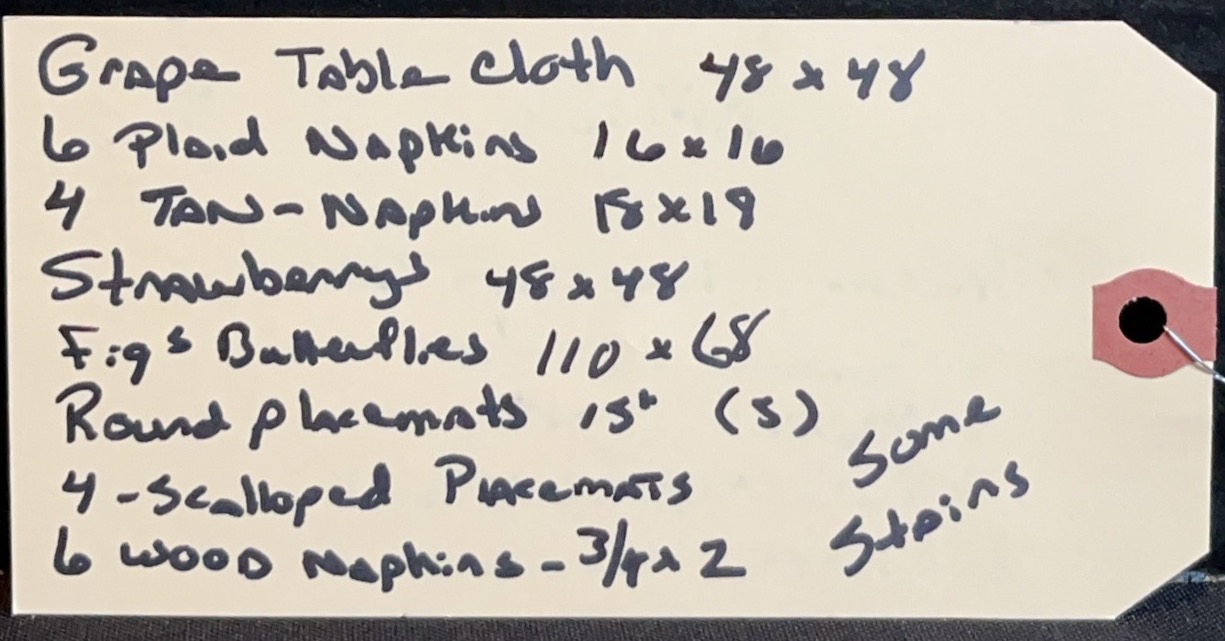 Grape Table Cloth 48 x 48
6 Plaid Napkins 16 x 16
4 TAN - Napkins 18 x 18
Strawberrys 48 x 48
Figs Butterflies 110 x 68
Round placemats 15" (5)
4 - Scalloped Placemats
6 WOOD Napkins - 3/4 x 2
Some
Stains